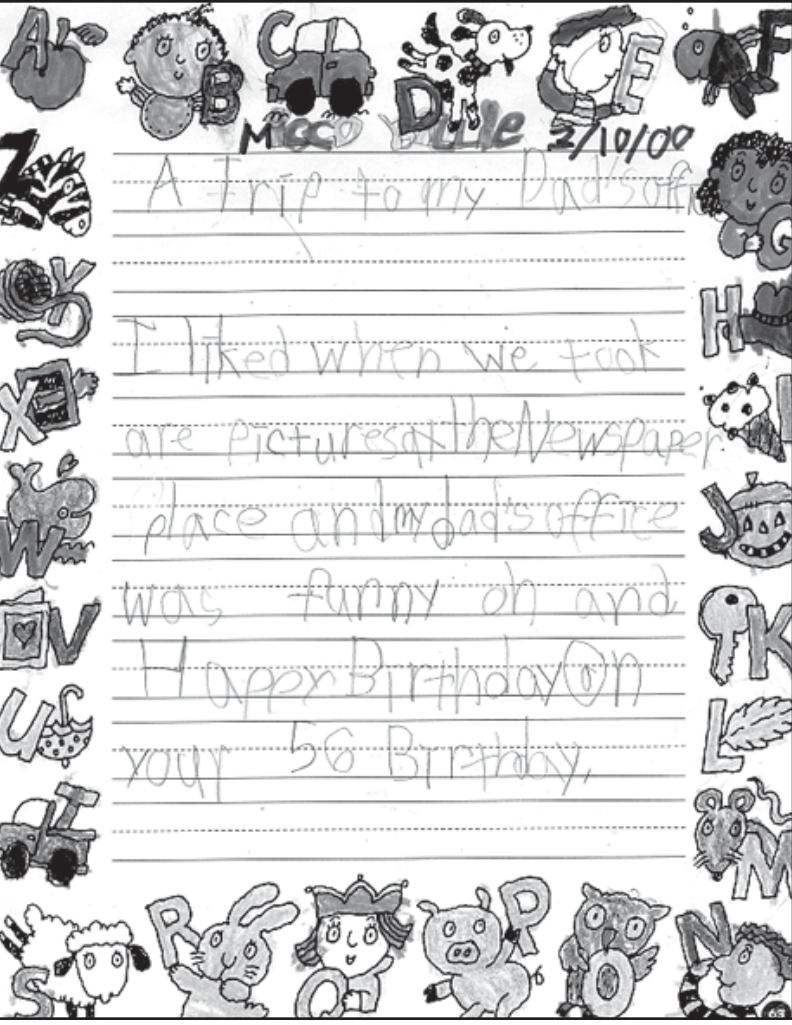 A B C D E F
Micco 2/10/00
Z A Trip to my Dad's offi G
Y H
X I liked when we took I
are pictures at the Newspaper
W place and my dad's office J
V was funny oh and K
Happy Birthday On
U your 56 Birthday. L
T M
S R Q P O N